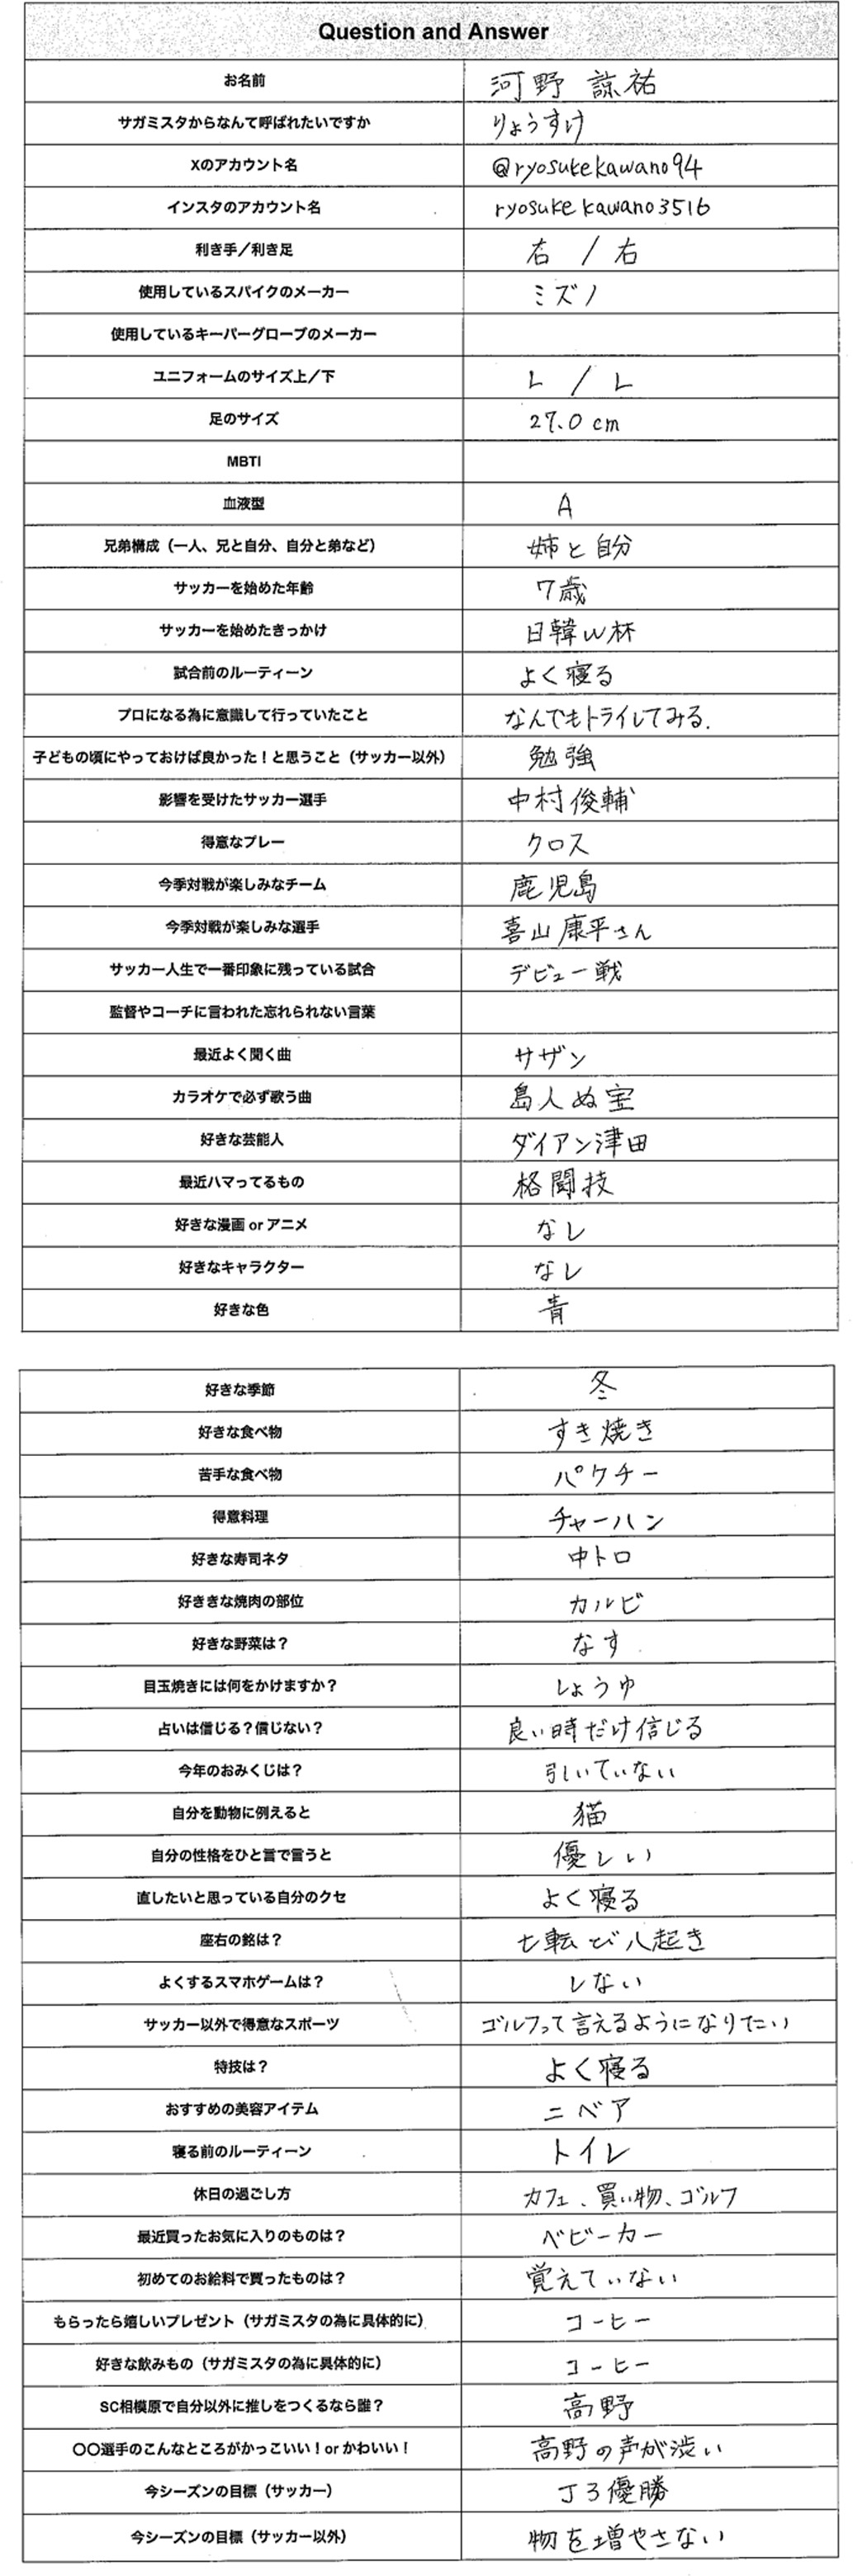 Question and Answer
お名前 河野 諒祐
サガミスタからなんて呼ばれたいですか りょうすけ
Xのアカウント名 @ryosukekawano94
インスタのアカウント名 ryosuke kawano3516
利き手/利き足 右 / 右
使用しているスパイクのメーカー ミズノ
使用しているキーパーグローブのメーカー
ユニフォームのサイズ上/下 L / L
足のサイズ 27.0 cm
MBTI
血液型 A
兄弟構成（一人、兄と自分、自分と弟など） 姉と自分
サッカーを始めた年齢 7歳
サッカーを始めたきっかけ 日韓W杯
試合前のルーティーン よく寝る
プロになる為に意識して行っていたこと なんでもトライしてみる.
子どもの頃にやっておけば良かった！と思うこと（サッカー以外） 勉強
影響を受けたサッカー選手 中村俊輔
得意なプレー クロス
今季対戦が楽しみなチーム 鹿児島
今季対戦が楽しみな選手 喜山康平さん
サッカー人生で一番印象に残っている試合 デビュー戦
監督やコーチに言われた忘れられない言葉
最近よく聞く曲 サザン
カラオケで必ず歌う曲 島人ぬ宝
好きな芸能人 ダイアン津田
最近ハマってるもの 格闘技
好きな漫画 or アニメ なし
好きなキャラクター なし
好きな色 青
好きな季節 冬
好きな食べ物 すき焼き
苦手な食べ物 パクチー
得意料理 チャーハン
好きな寿司ネタ 中トロ
好ききな焼肉の部位 カルビ
好きな野菜は？ なす
目玉焼きには何をかけますか？ しょうゆ
占いは信じる？信じない？ 良い時だけ信じる
今年のおみくじは？ 引いていない
自分を動物に例えると 猫
自分の性格をひと言で言うと 優しい
直したいと思っている自分のクセ よく寝る
座右の銘は？ 七転び八起き
よくするスマホゲームは？ しない
サッカー以外で得意なスポーツ ゴルフって言えるようになりたい
特技は？ よく寝る
おすすめの美容アイテム ニベア
寝る前のルーティーン トイレ
休日の過ごし方 カフェ、買い物、ゴルフ
最近買ったお気に入りのものは？ ベビーカー
初めてのお給料で買ったものは？ 覚えていない
もらったら嬉しいプレゼント（サガミスタの為に具体的に） コーヒー
好きな飲みもの（サガミスタの為に具体的に） コーヒー
SC相模原で自分以外に推しをつくるなら誰？ 高野
〇〇選手のこんなところがかっこいい！or かわいい！ 高野の声が渋い
今シーズンの目標（サッカー） J3優勝
今シーズンの目標（サッカー以外） 物を増やさない